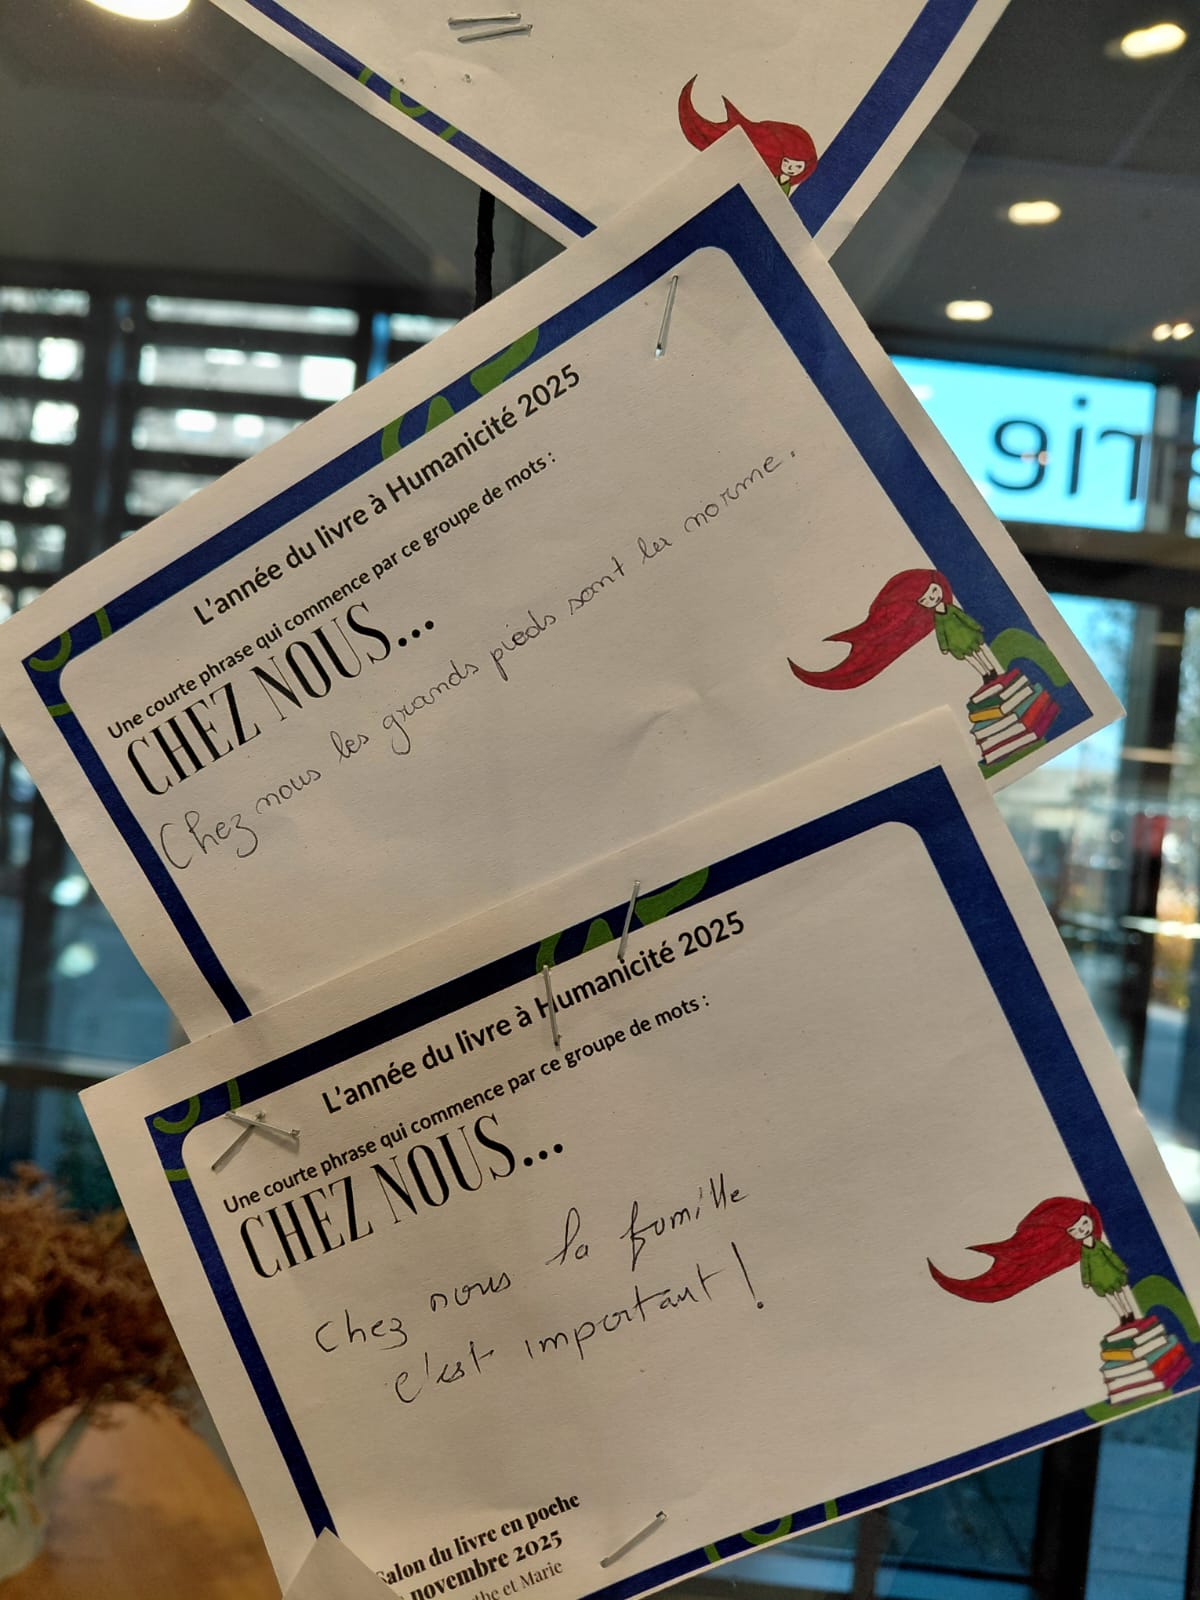 L'année du livre à Humanicité 2025
Une courte phrase qui commence par ce groupe de mots :
CHEZ NOUS...
Chez nous les grands pieds sont la norme.
L'année du livre à Humanicité 2025
Une courte phrase qui commence par ce groupe de mots :
CHEZ NOUS...
Chez nous la famille
c'est important !
Salon du livre en poche
novembre 2025
et Marie